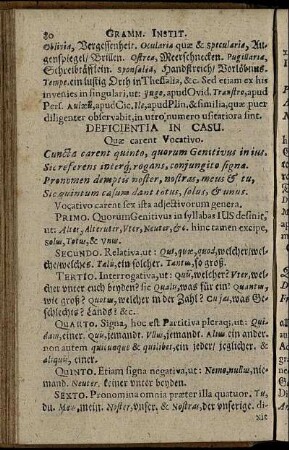 80 GRAMM. INSTIT.
Oblivia, Vergessenheit. Ocularia quæ & specularia, Au-
genspiegel/ Brillen. Ostrea, Meerschnecken. Pugillaria,
Schreibtäfflein. Sponsalia, Handstreich/ Verlöbnus.
Tempe, ein lustig Orth in Thessalia, &c. Sed etiam ex his
invenies in singulari, ut: Jugo, apud Ovid. Transtro, apud
Pers. apud Cic. Ile, apud Plin. & similia, quæ puer
diligenter observabit, in utro numero usitatiora sint.
DEFICIENTIA IN CASU.
Quæ carent Vocativo.
Cuncta carent quinto, quorum Genitivus in ius.
Sic referens interq́, rogans, conjungito signa.
Pronomen demptis noster, nostras, meus & tu,
Sic quintum casum dant totus, solus, & unus.
Vocativo carent sex ista adjectivorum genera.
PRIMO. Quorum Genitivus in syllabas IUS desinit,
ut: Alter, Alteruter, Uter, Neuter, &c. hinc tamen excipe,
solus, Totus, & Unus.
SECUNDO. Relativa, ut: Qui, quæ, quod, welcher/ wel-
che/ welches. Talis, ein solcher. Tantus, so groß.
TERTIO. Interrogativa, ut: Quis, welcher? Uter, wel-
cher unter euch beyden? sic Qualis, was für ein? Quantus,
wie groß? Quotus, welcher in der Zahl? Cujas, was Ge-
schlechts? Lands? &c.
QUARTO. Signa, hoc est Partitiva pleraq́; ut: Qui-
dam, einer. Quis, jemandt. Ullus, jemandt. Alius ein ander.
non autem quicunque & quilibet, ein jeder/ jeglicher, &
aliquis, einer.
QUINTO. Etiam signa negativa, ut: Nemo, nullus, nie-
mand. Neuter, keiner unter beyden.
SEXTO. Pronomina omnia præter illa quatuor. Tu,
du. Meus, mein. Noster, unser. & Nostras, der unserige. di-
xit